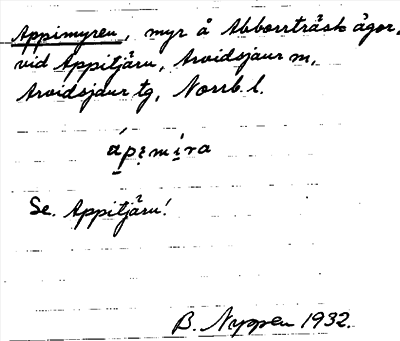 Appimyren, myr å Abborrträsk ägor,
vid Appitjärn, Arvidsjaur m,
Arvidsjaur tg, Norrb. l.
ápęmi̱ra
Se. Appitjärn!
B. Nyppen 1932.